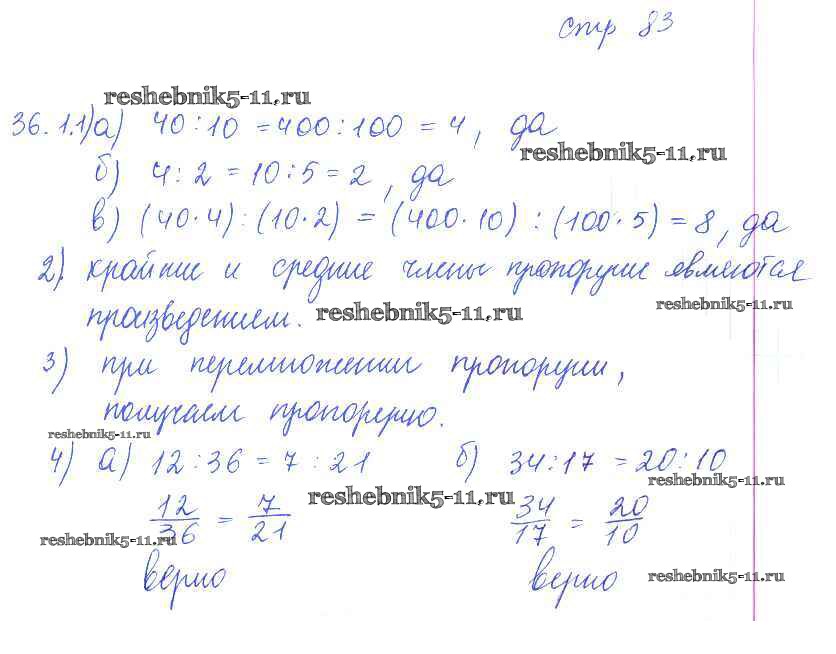 стр 83
reshebnik5-11.ru
36. 1.1) а) 40 : 10 = 400 : 100 = 4, да
reshebnik5-11.ru
б) 4 : 2 = 10 : 5 = 2, да
в) (40·4) : (10·2) = (400·10) : (100·5) = 8, да
2) крайние и средние члены пропорции являются
reshebnik5-11.ru
произведением. reshebnik5-11.ru
3) при перемножении пропорции,
получаем пропорцию.
reshebnik5-11.ru
4) а) 12 : 36 = 7 : 21 б) 34 : 17 = 20 : 10
reshebnik5-11.ru
12/36 = 7/21 reshebnik5-11.ru 34/17 = 20/10
reshebnik5-11.ru
верно верно reshebnik5-11.ru